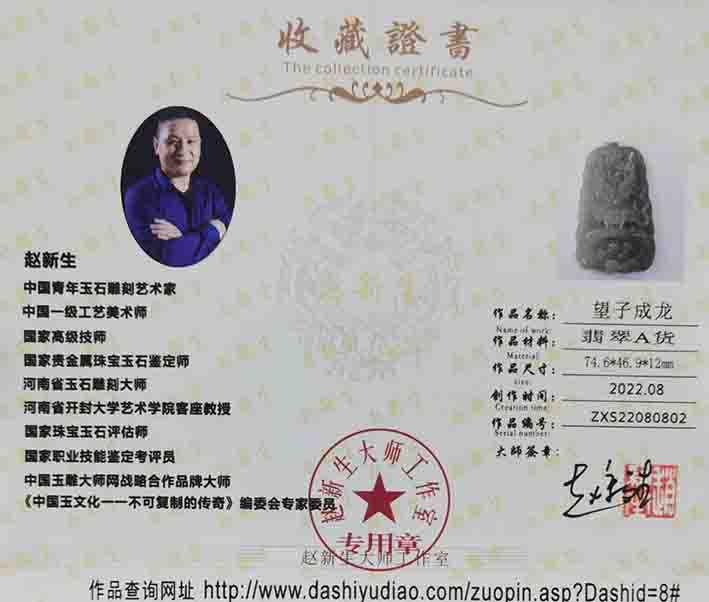 收藏證書
The collection certificate
赵新生
中国青年玉石雕刻艺术家
中国一级工艺美术师
国家高级技师
国家贵金属珠宝玉石鉴定师
河南省玉石雕刻大师
河南省开封大学艺术学院客座教授
国家珠宝玉石评估师
国家职业技能鉴定考评员
中国玉雕大师网战略合作品牌大师
《中国玉文化一一不可复制的传奇》编委会专家委员
作品名称: 望子成龙
Name of work:
作品材料: 翡翠A货
Material:
作品尺寸: 74.6*46.9*12mm
size:
创作时间: 2022.08
Creation time:
作品编号: ZXS22080802
Serial number:
大师签章:
赵新生大师工作室
专用章
赵新生大师工作室
作品查询网址 http://www.dashiyudiao.com/zuopin.asp?Dashid=8#